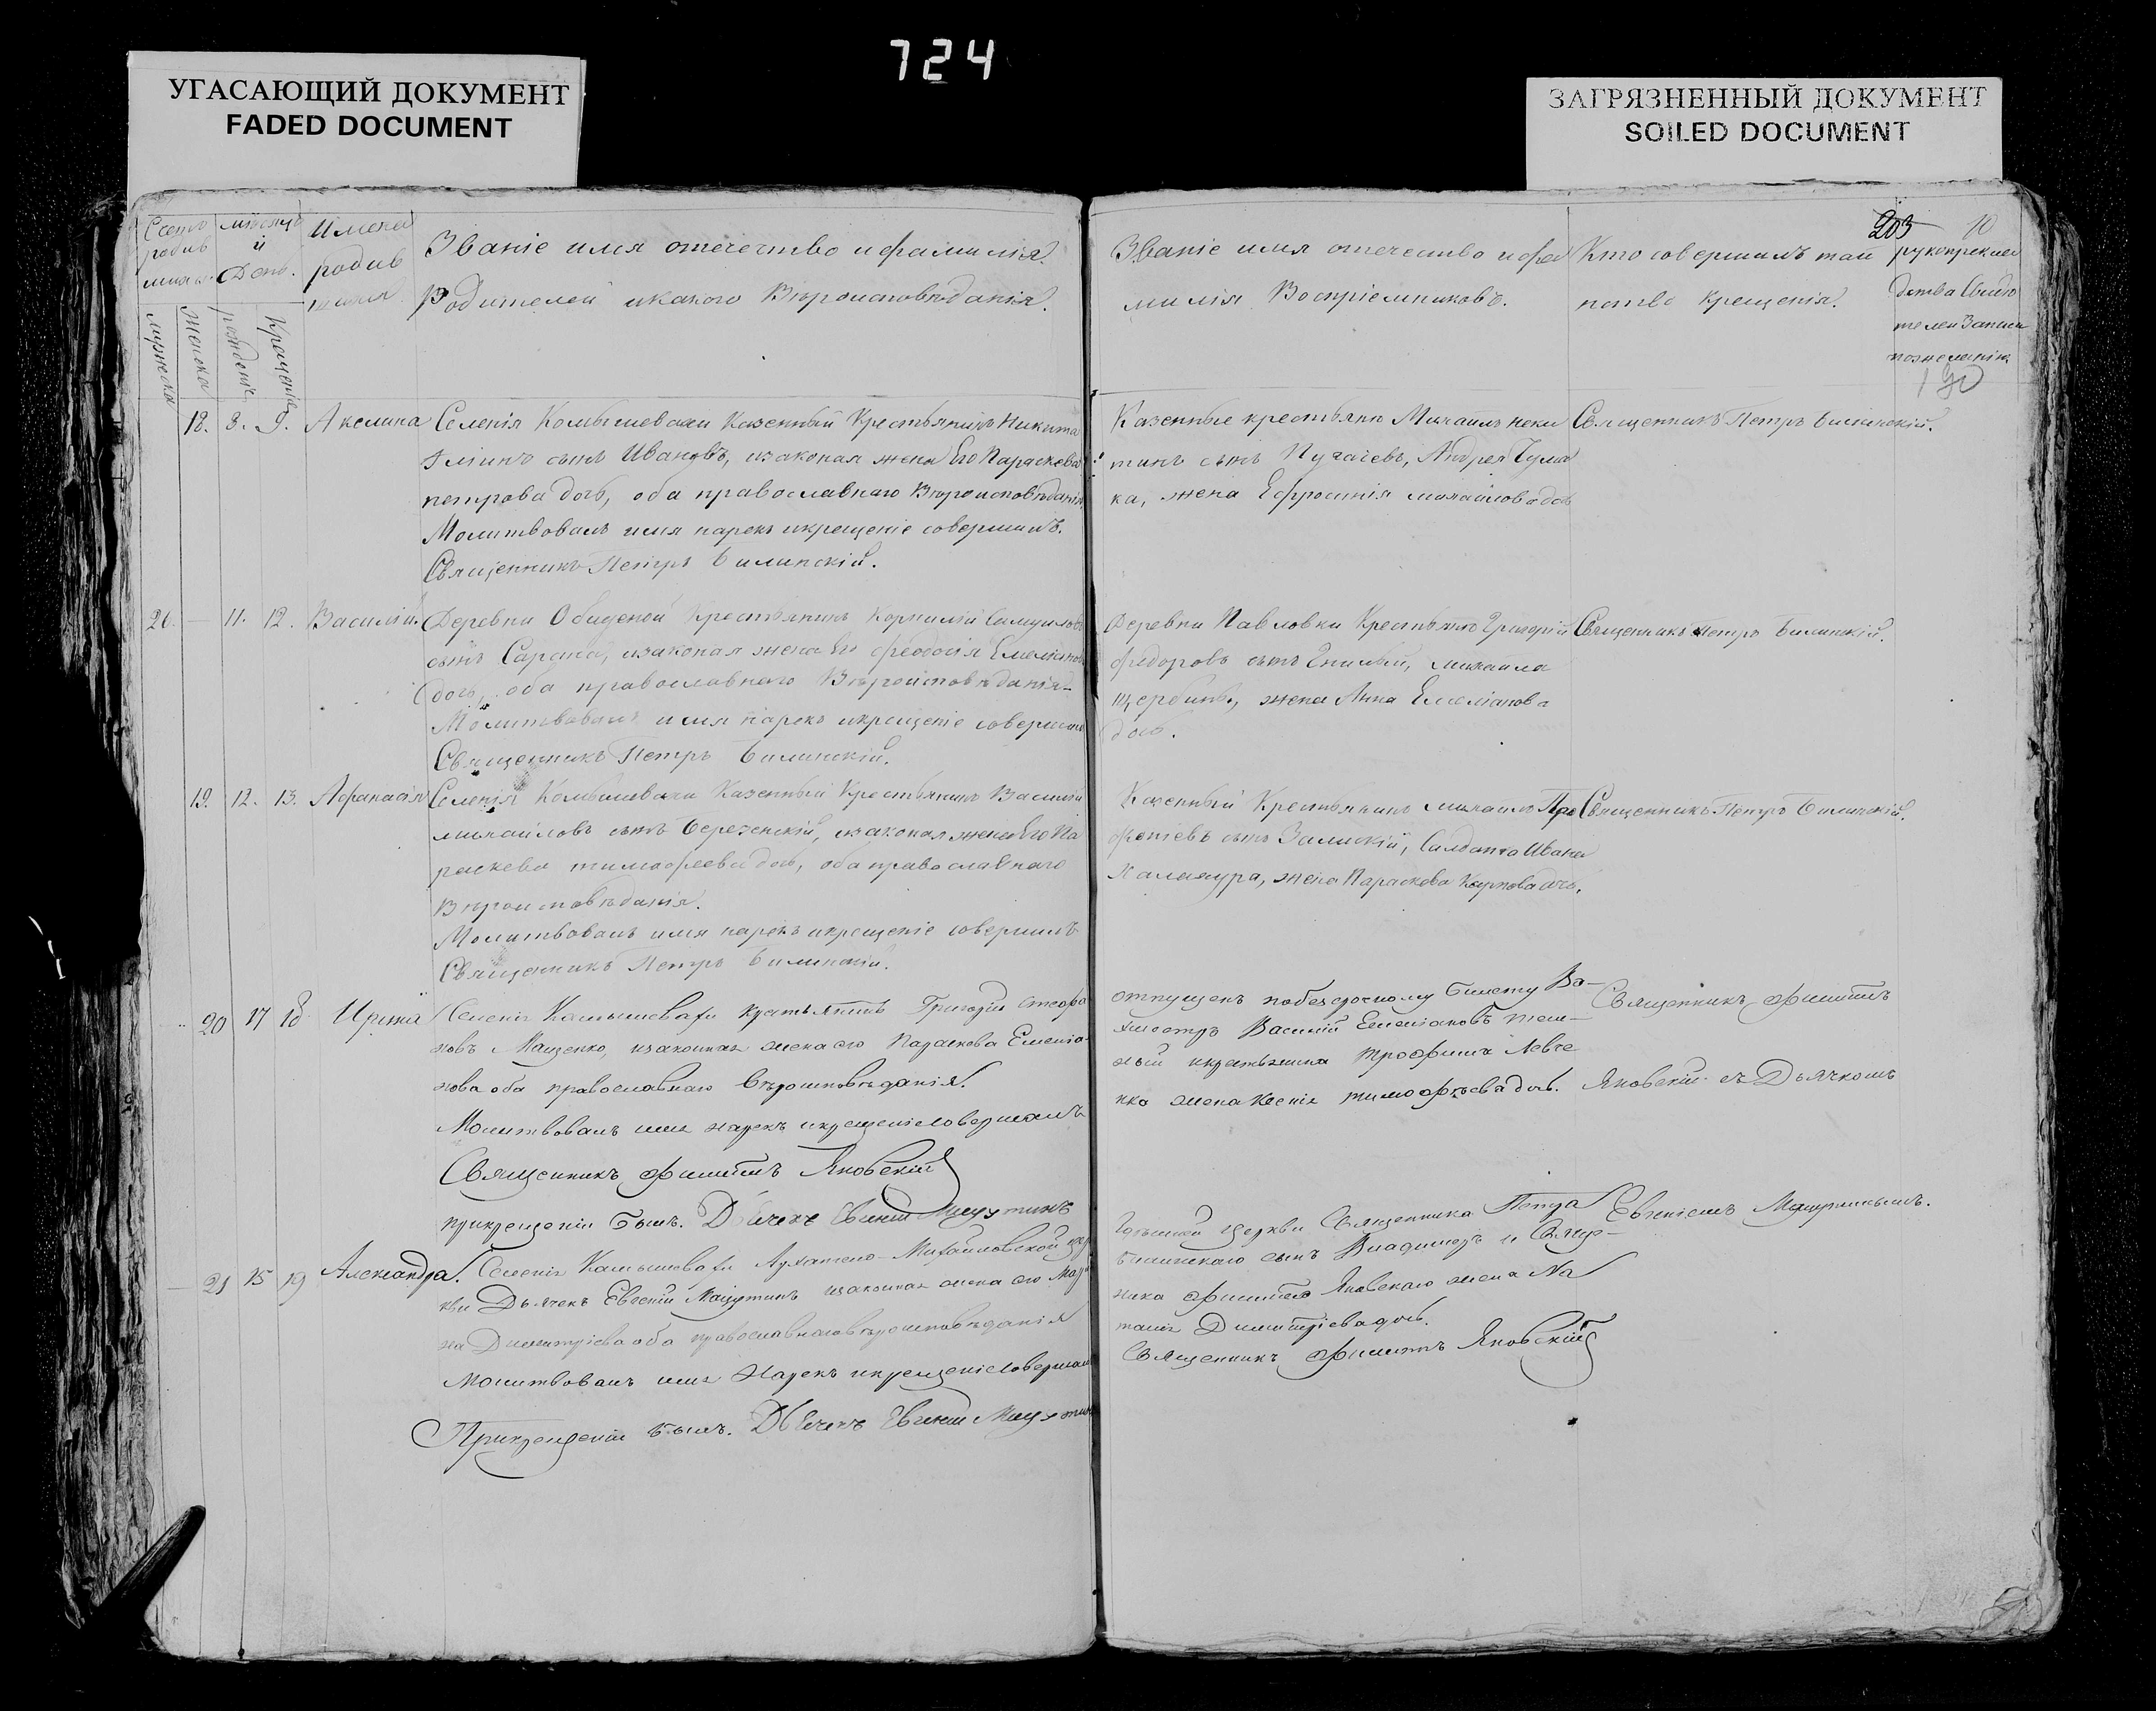 724
УГАСАЮЩИЙ ДОКУМЕНТ
FADED DOCUMENT
ЗАГРЯЗНЕННЫЙ ДОКУМЕНТ
SOILED DOCUMENT
203 10
Счетъ родив
мѣсяцъ и День.
Имена родив
Званіе имя отечество и фамилія
Родителей и какого Вѣроисповѣданія.
мужеска
женска
рожденіе
Крещенія
Званіе имя отечество и фа
милія Воспріемниковъ.
Кто совершилъ таи
нство Крещенія.
рукоприклад
ства Свидѣ
телей Записи
пожеланію
190
18. 8. 9. Акелина Селенія Комышевахи Казенный Крестьянинъ Никита
сынъ Ивановъ, изаконая жена Его Параскева
петрова дочь, оба православнаго Вѣроисповѣданія,
Молитвовалъ имя нарекъ икрещеніе совершилъ.
Священникъ Петръ Билинскій.
Казенные крестьяне Михаилъ
сынъ Пугачевъ, Андрея Чума
ка, жена Ефросинія михайлова дочь
Священникъ Петръ Билинскій.
26. — 11. 12. Василій. Деревни Обиденой Крестьянинъ Корнилій Самуиловъ
сынъ изаконая жена Его феодосія Емеліянова
дочь, оба православнаго Вѣроисповѣданія
Молитвовалъ имя нарекъ икрещеніе совершилъ
Священникъ Петръ Билинскій.
Деревни Павловки Крестьянинъ Григорій
федоровъ сынъ Гнилый, михаила
щербины, жена Анна Емеліанова
дочь.
Священникъ Петръ Билинскій.
19. 12. 13. Афанасія Селенія Комышевахи Казенный Крестьянинъ Василій
михайловъ сынъ Березенскій, изаконая жена Его Па
раскева тимофеева дочь, оба православнаго
Вѣроисповѣданія.
Молитвовалъ имя нарекъ икрещеніе совершилъ
Священникъ Петръ Билинскій.
Казенный Крестьянинъ михаилъ Пар
феніевъ сынъ Залискій, Салдата Ивана
жена Параскева Карпова дочь.
Священникъ Петръ Билинскій.
20 17 18 Ирина Селенія Камышевахи крестьянинъ Григорій Стефа
новъ Мащенко, изаконная жена его Параскева Емеліа
нова оба православнаго вѣроисповѣданія.
Молитвовалъ имя нарекъ икрещеніе совершилъ
Священникъ филиппъ Яновскій
прикрещеніи былъ. Дьячекъ Евгеній Мащутинъ
отпущенъ побезсрочному билету Ва-
хмистръ Василій Емеліановъ
икрестьянина трофима Левче
нко жена Ксенія тимофѣева дочь.
Священникъ филиппъ
Яновскій съ Дьячкомъ
Евгеніемъ Мащутинымъ.
21 15 19 Александра. Селенія Камышевахи Архангело-Михайловской цер
кви Дьячекъ Евгеній Мащутинъ изаконная жена его Мар
на Димитріева оба православнаго вѣроисповѣданія
Молитвовалъ имя Нарекъ икрещеніе совершилъ
Прикрещеніи былъ. Дьячекъ Евгеній Мащутинъ
церкви Священника Петра
Билинскаго сынъ Владимиръ и Свяще-
ника филиппа Яновскаго жена На
талія Димитріева дочь.
Священникъ филиппъ Яновскій